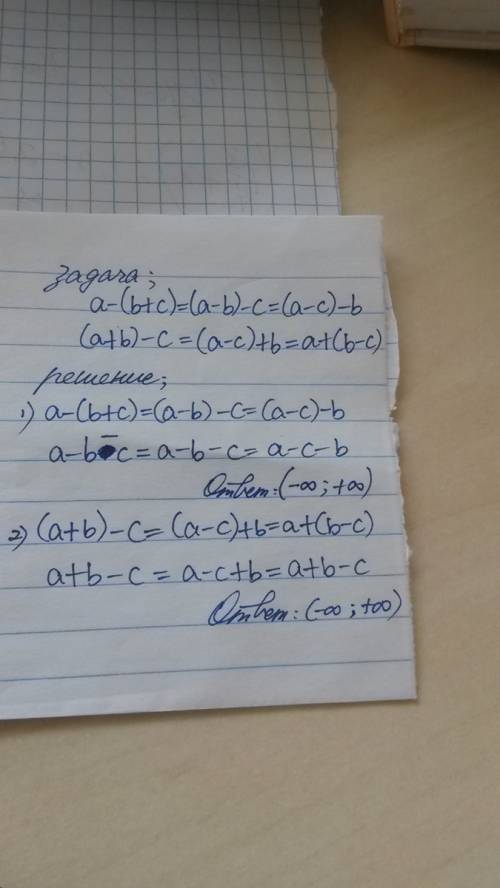 задача;
a-(b+c)=(a-b)-c=(a-c)-b
(a+b)-c=(a-c)+b=a+(b-c)
решение;
1) a-(b+c)=(a-b)-c=(a-c)-b
a-b-c=a-b-c=a-c-b
Ответ:(-∞;+∞)
2) (a+b)-c=(a-c)+b=a+(b-c)
a+b-c=a-c+b=a+b-c
Ответ:(-∞;+∞)